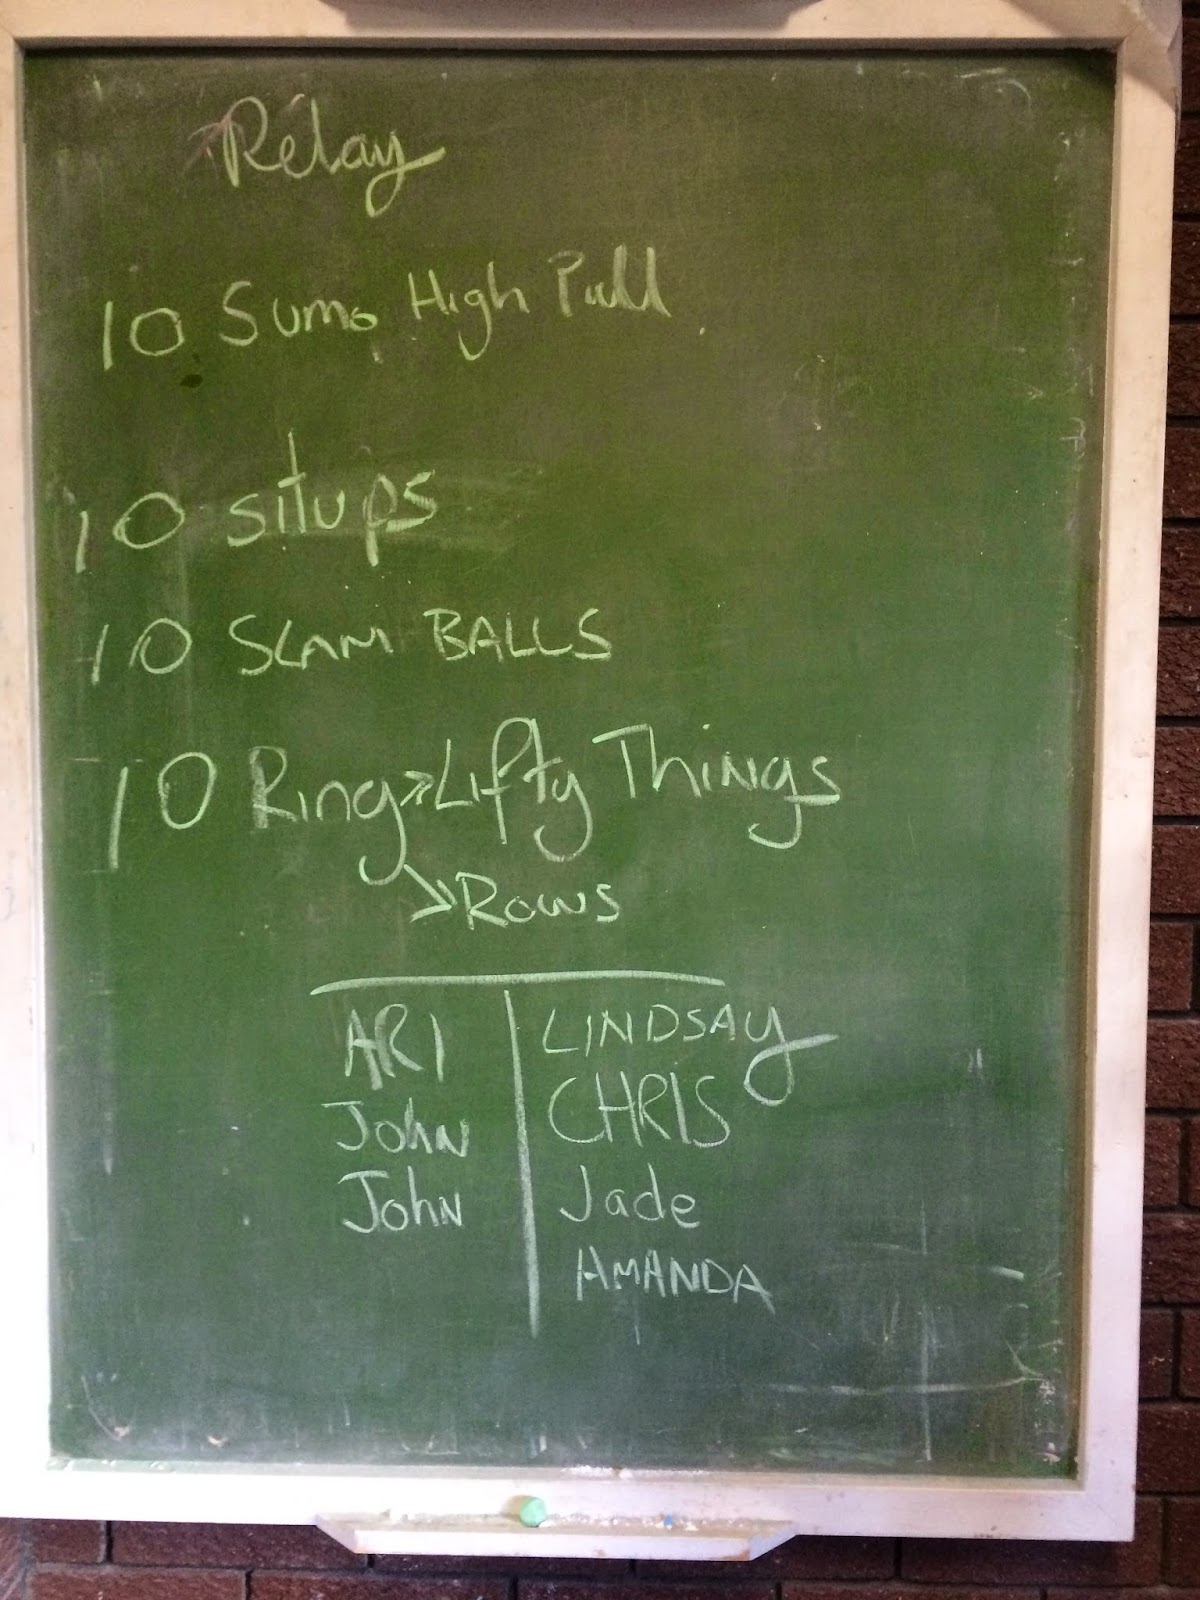 Relay
10 Sumo High Pull
10 situps
10 SLAM BALLS
10 Ring > Lifty Things
> Rows
ARI LINDSAY
John CHRIS
John Jade
AMANDA